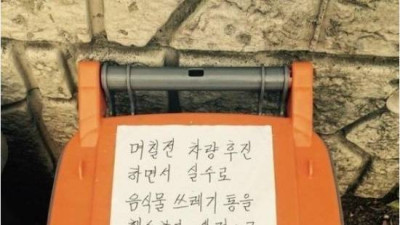 며칠전 차량 후진
하면서 실수로
음식물 쓰레기 통을